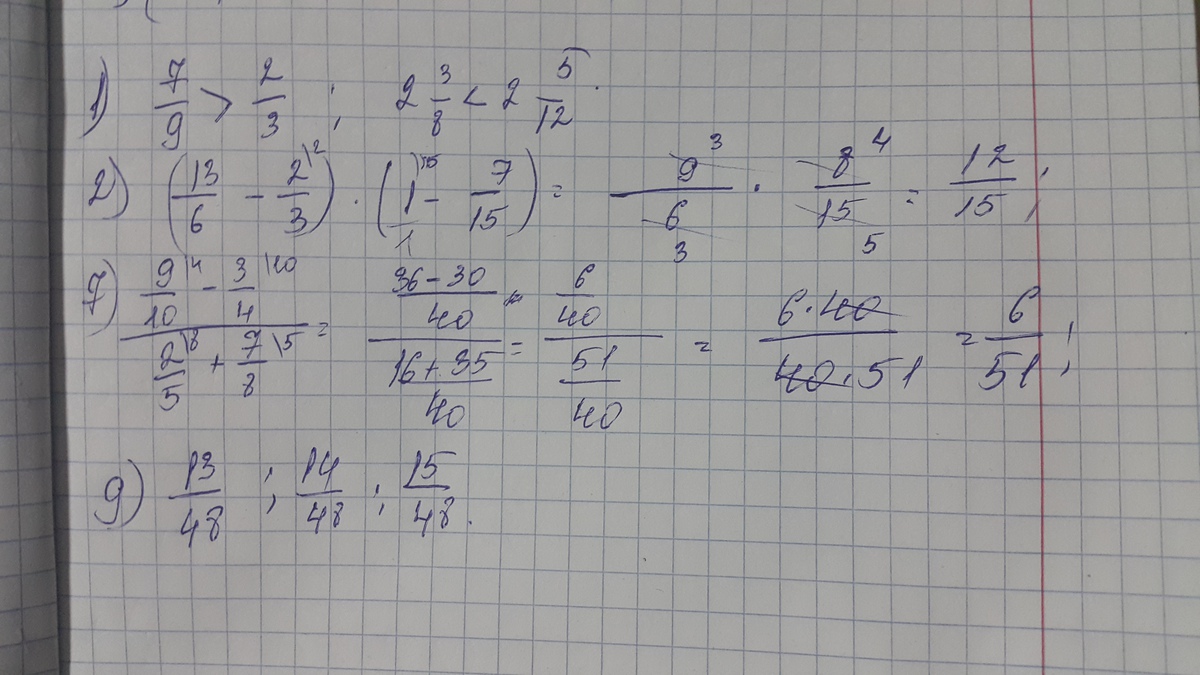 1) 7/9 > 2/3 ; 2 3/8 < 2 5/12 .
2) (13/6 - 2/3 \2) · (1/1 \15 - 7/15) = 9 3/6 3 · 8 4/15 5 = 12/15 ;
7) (9/10 \4 - 3/4 \10)/(2/5 \8 + 7/8 \5) = ((36-30)/40)/((16+35)/40) = (6/40)/(51/40) = (6·40)/(40·51) = 6/51 ;
9) 13/48 ; 14/48 ; 15/48 .